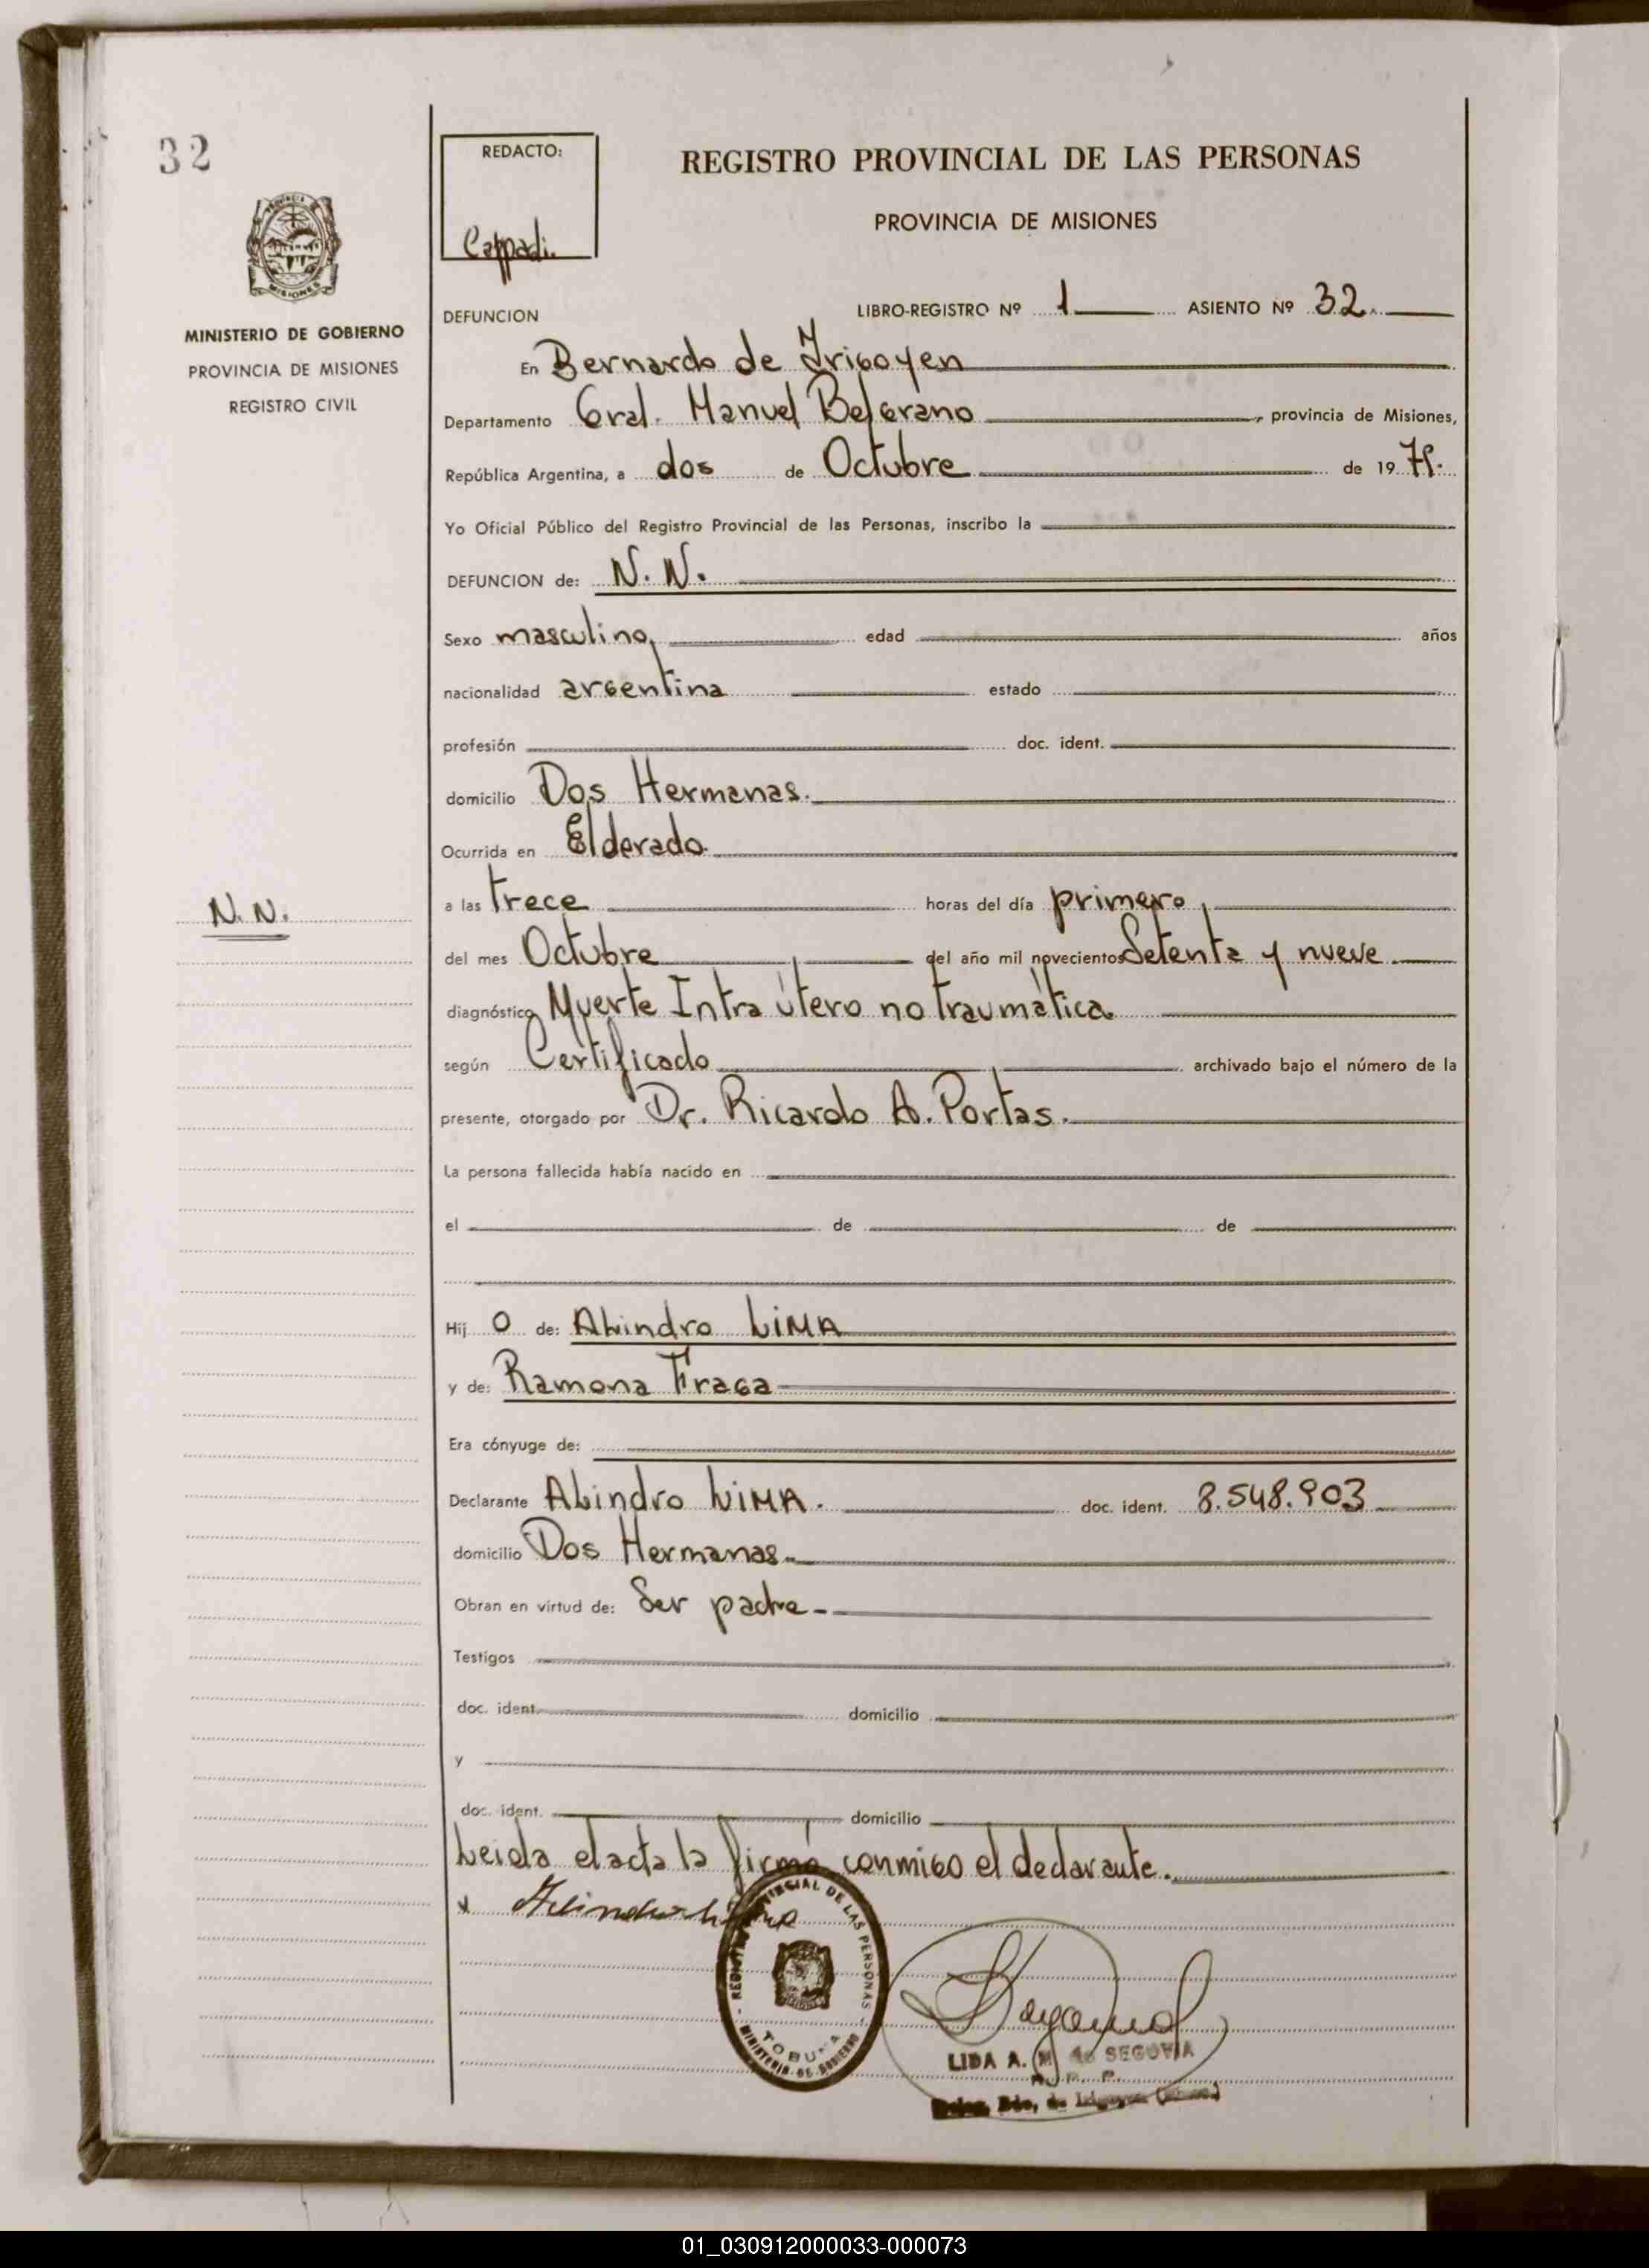 32
REDACTO:
Cappadi.
REGISTRO PROVINCIAL DE LAS PERSONAS
PROVINCIA DE MISIONES
MISIONES
MINISTERIO DE GOBIERNO
PROVINCIA DE MISIONES
REGISTRO CIVIL
DEFUNCION LIBRO-REGISTRO Nº 1 ASIENTO Nº 32
En Bernardo de Irigoyen
Departamento Gral. Manuel Belgrano, provincia de Misiones,
República Argentina, a dos de Octubre de 1979.
Yo Oficial Público del Registro Provincial de las Personas, inscribo la
DEFUNCION de: N. N.
Sexo masculino, edad años
nacionalidad argentina estado
profesión doc. ident.
domicilio Dos Hermanas.
Ocurrida en Eldorado
N. N.
a las trece horas del día primero,
del mes Octubre del año mil novecientos Setenta y nueve
diagnóstico Muerte Intra útero no traumática.
según Certificado archivado bajo el número de la
presente, otorgado por Dr. Ricardo A. Portas.
La persona fallecida había nacido en
el de de
Hij o de: ALindro LiMA
y de: Ramona Fraga
Era cónyuge de:
Declarante ALindro LiMA. doc. ident. 8.548.903
domicilio Dos Hermanas.
Obran en virtud de: Ser padre-
Testigos
doc. ident. domicilio
y
doc. ident. domicilio
Leida el acta la firmó conmigo el declarante.
x
REGISTRO PROVINCIAL DE LAS PERSONAS
TOBUNA
MINISTERIO DE GOBIERNO
LIDA A. M. de SEGOVIA
01_030912000033-000073